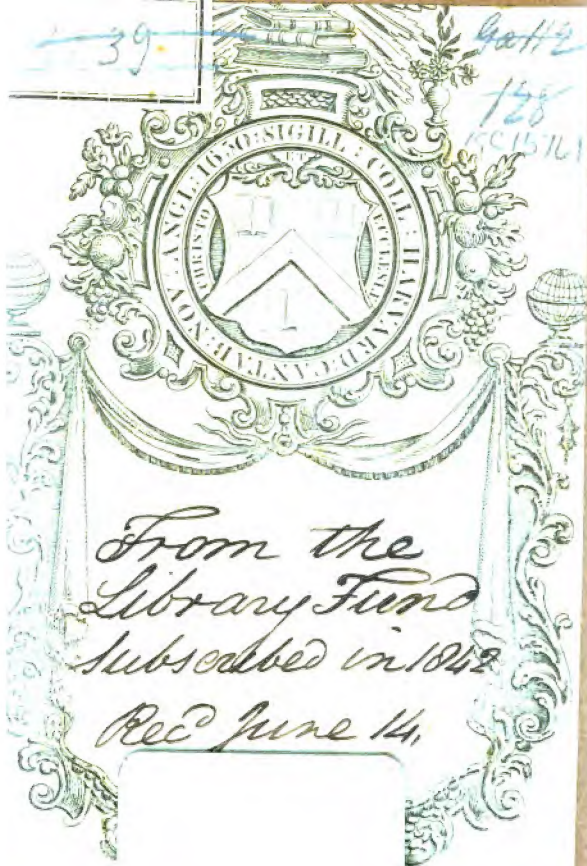 39.
128
SIGILL : COLL : HARVARD : CANTAB : NOV : ANGL : 1650 :
CHRISTO ET ECCLESIÆ
From the
Library Fund
subscribed in 1842
Rec'd June 14,